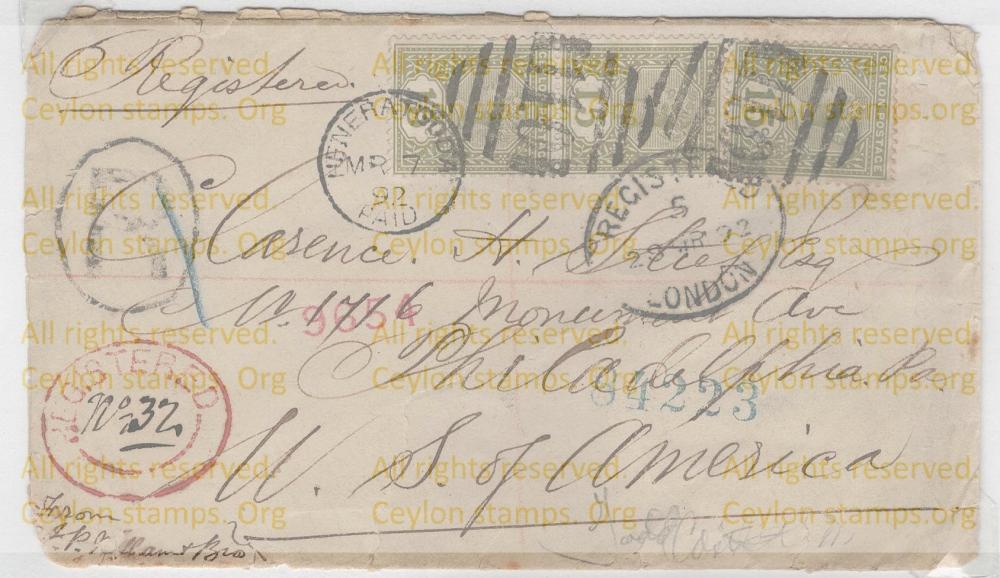 Registered.
15
15
15
POSTAGE
MR 7
92
PAID
REGISTERED
5
MR 92
LONDON
Clarence. H. Esq
No. 1716 Monument Ave
9654
Philadelphia. Pa.
84223
REGISTERED
No. 32.
U. S. of America
From
All rights reserved.
Ceylon stamps. Org
All rights reserved.
Ceylon stamps. Org
All rights reserved.
Ceylon stamps. Org
All rights reserved.
Ceylon stamps. Org
All rights reserved.
Ceylon stamps. Org
All rights reserved.
Ceylon stamps. Org
All rights reserved.
Ceylon stamps. Org
All rights reserved.
Ceylon stamps. Org
All rights reserved.
Ceylon stamps. Org
All rights reserved.
Ceylon stamps. Org
All rights reserved.
Ceylon stamps. Org
All rights reserved.
Ceylon stamps. Org